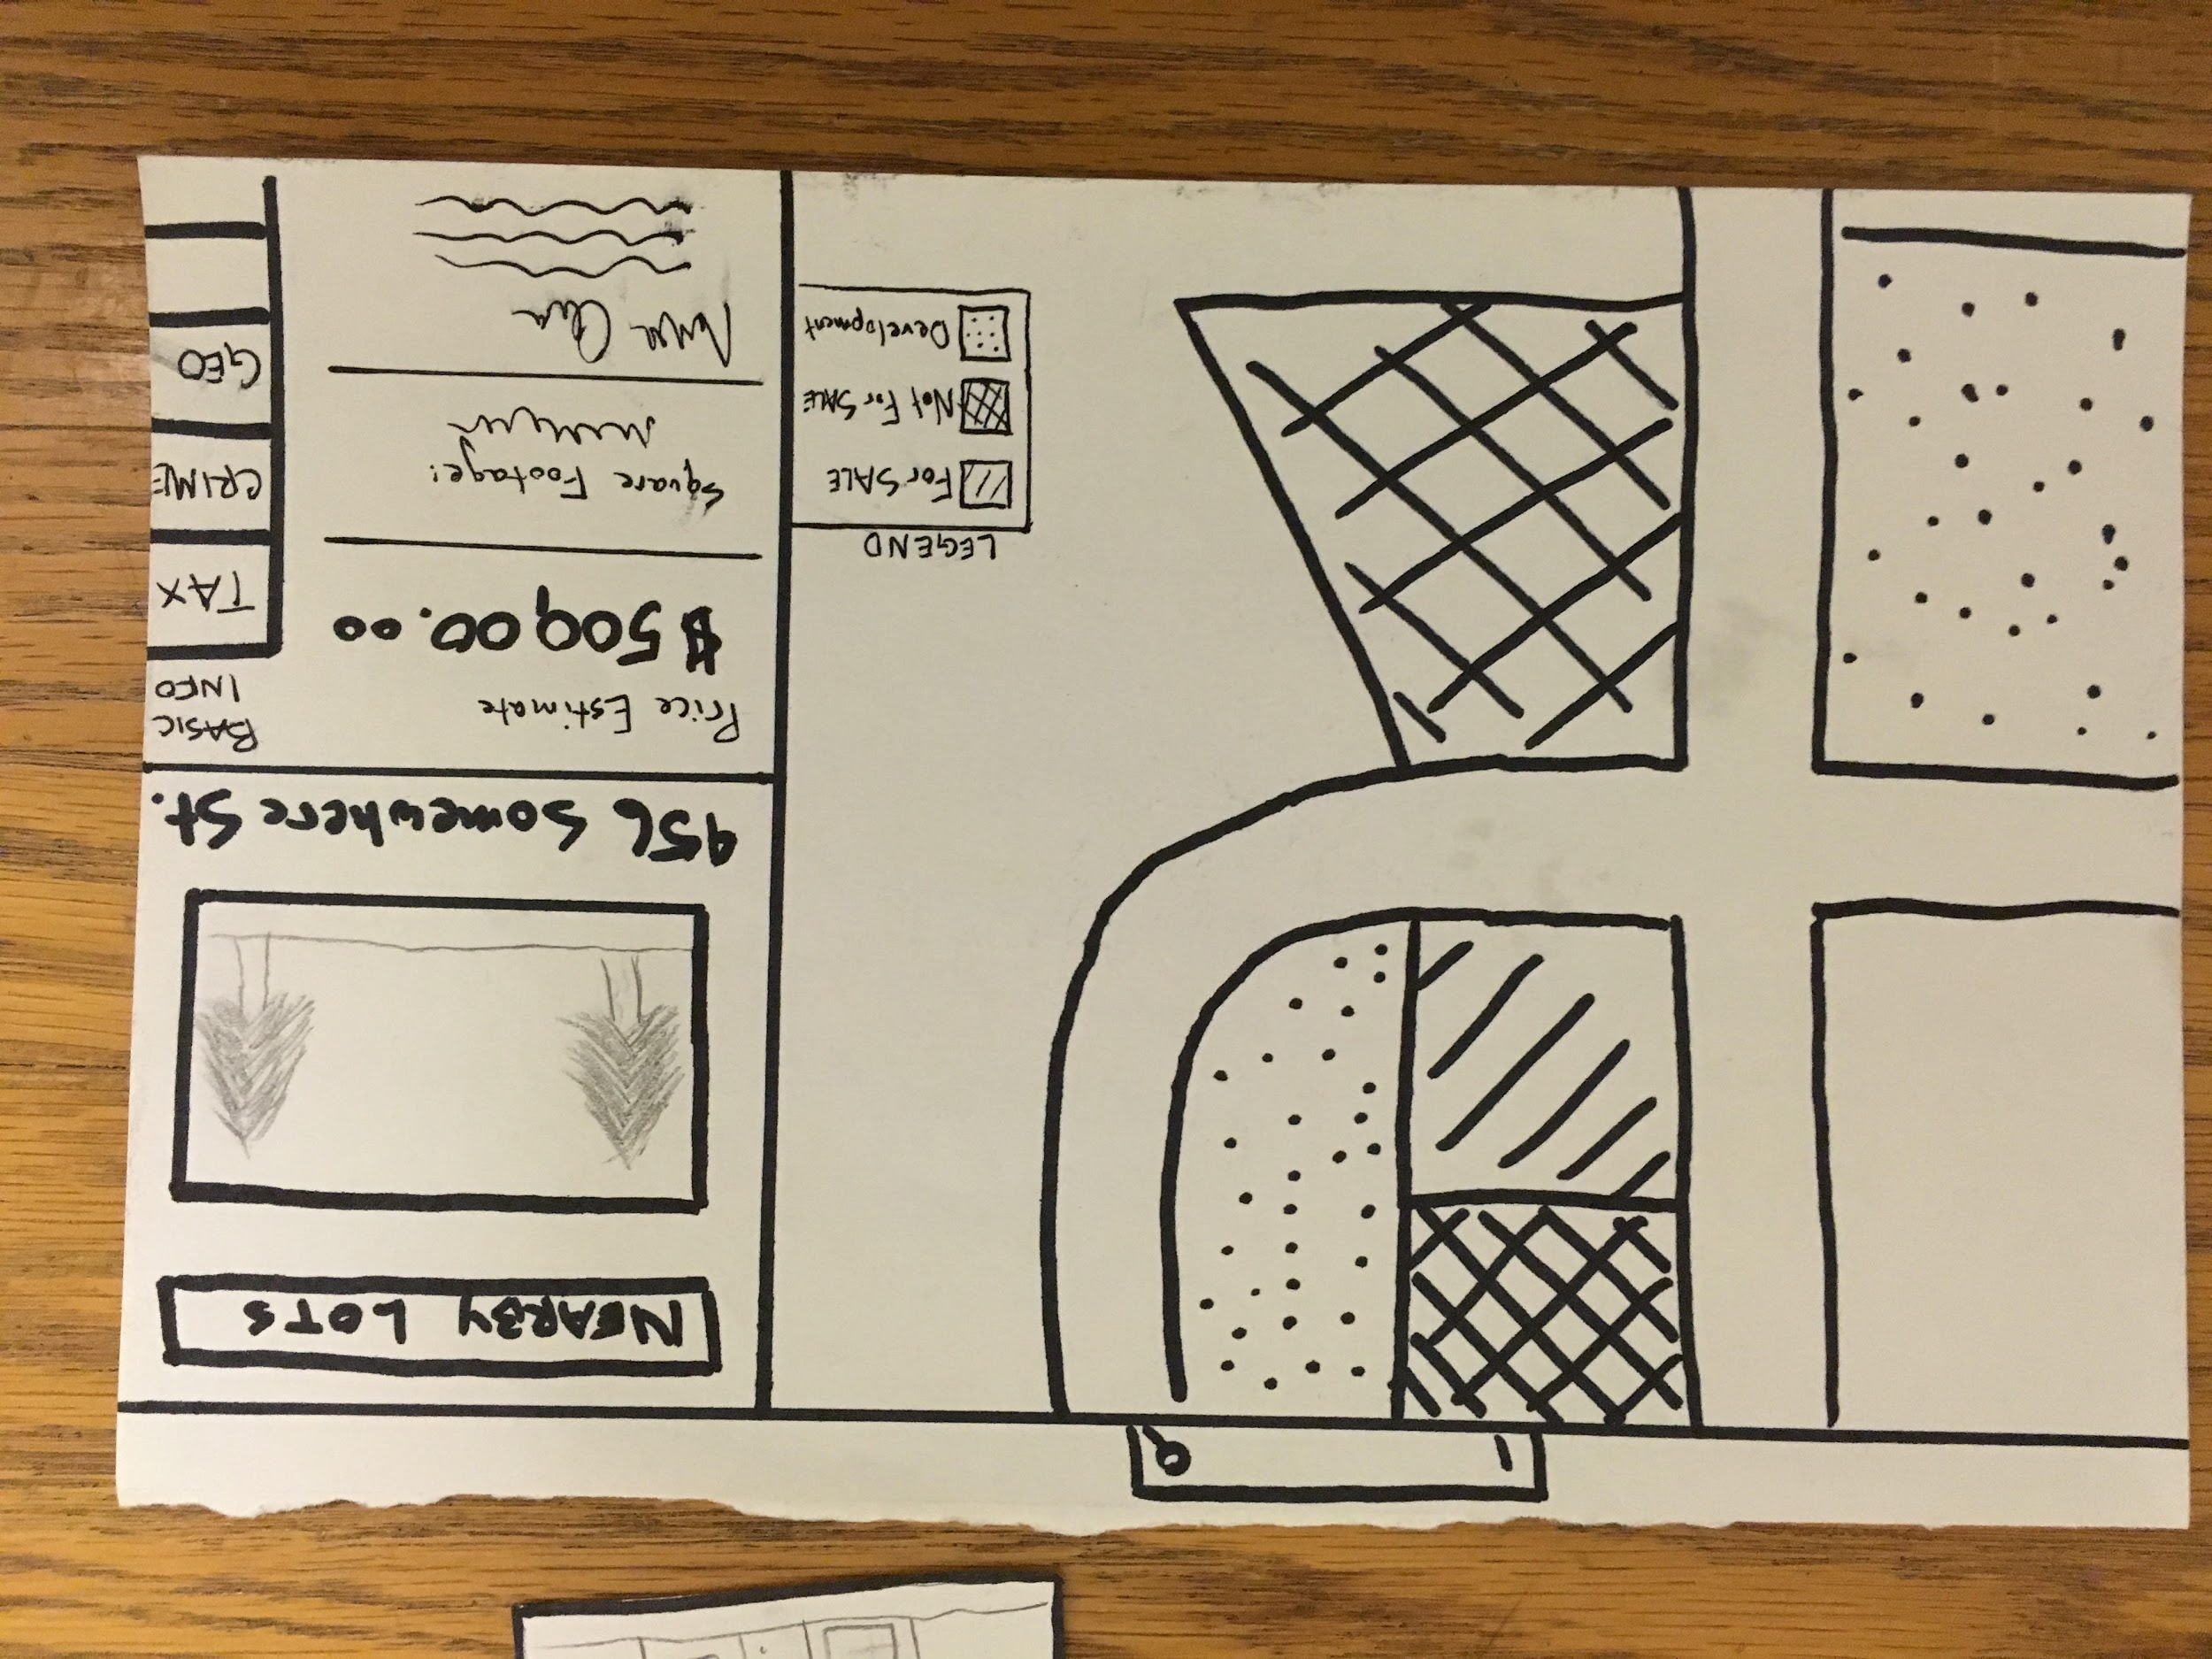 NEARBY LOTS
956 Somewhere St.
BASIC
INFO
TAX
CRIME
GEO
Price Estimate
$500,00.00
Square Footage:
LEGEND
For SALE
Not For SALE
Development